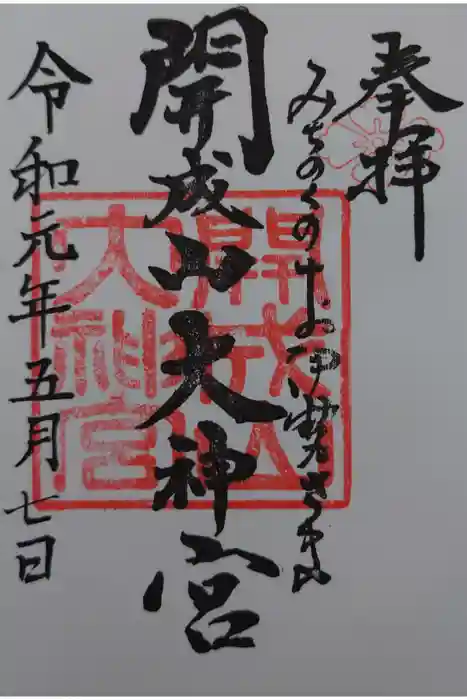 奉拝
みちのくのお伊勢さま
開成山大神宮
開成山
大神宮
令和元年五月七日